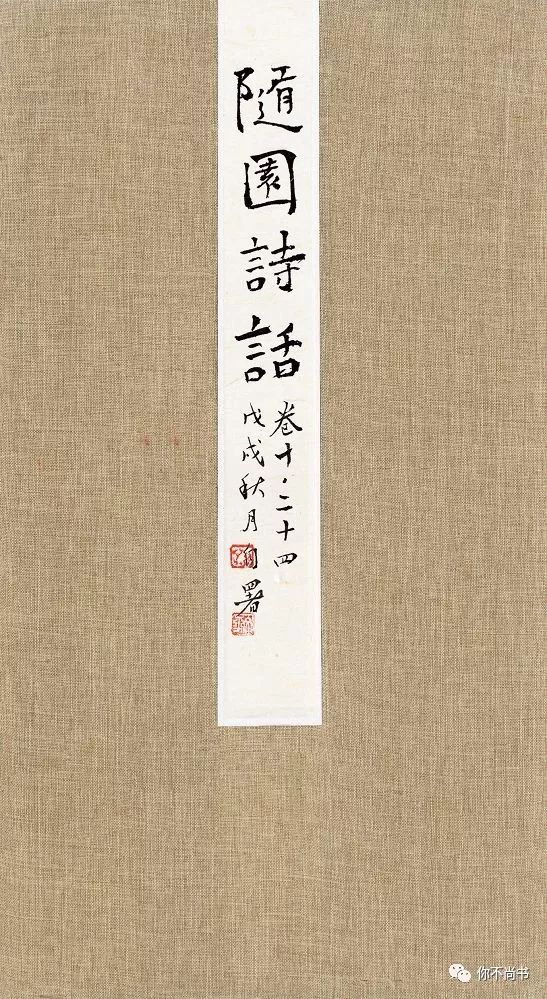 隨園詩話
卷十·二十四
戊戌秋月自署
你不尚书